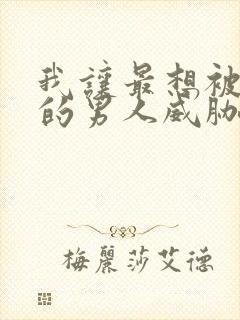 我讓最想被
的男人威脅
梅麗莎艾德